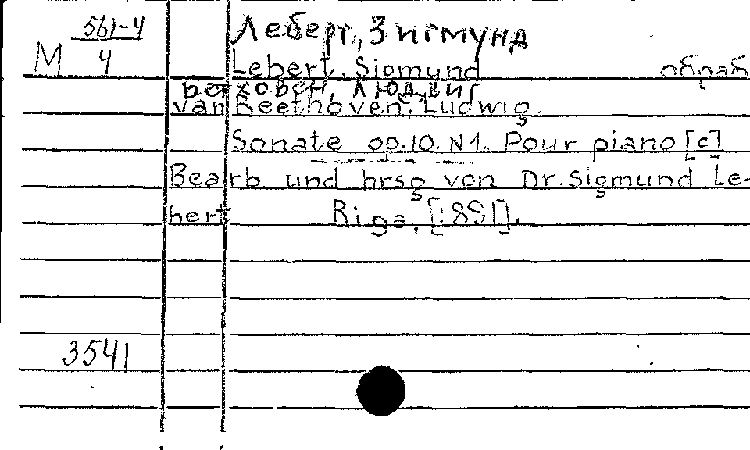 M 561-4/4
Леберт, Зигмунд
Lebert, Sigmund обраб
Бетховен, Людвиг
van Beethoven, Ludwig.
Sonate op.10. N1. Pour piano [c]
Bearb und hrsg von Dr. Sigmund Le-
bert Riga, [1891].
3541